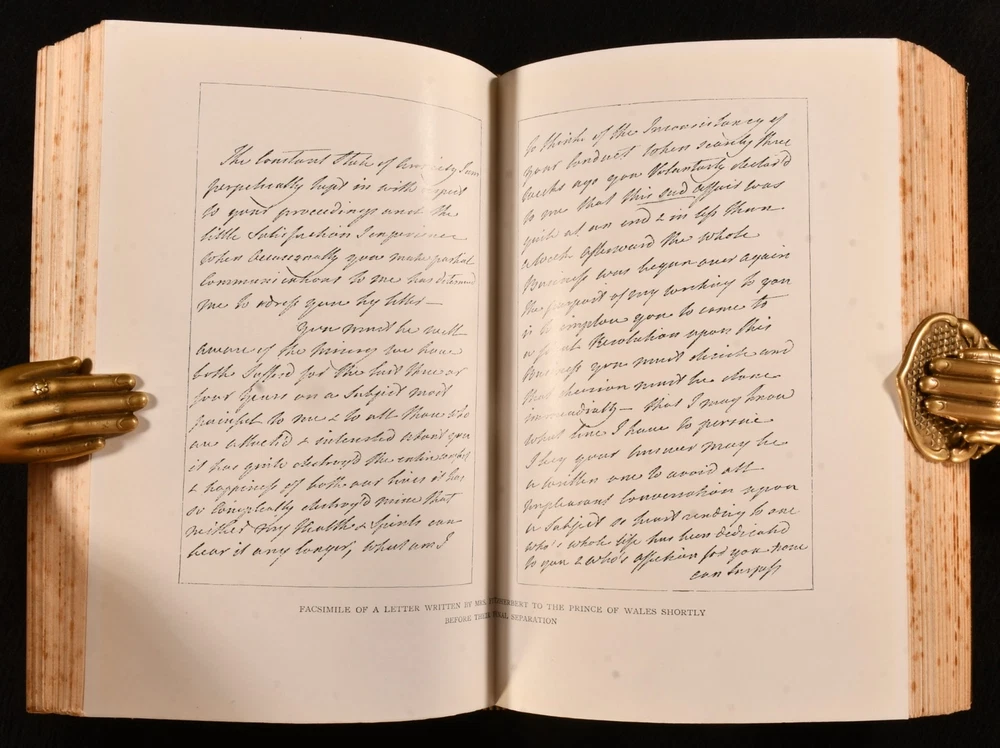 The Constant State of Anxiety I am
perpetually kept in with respect
to your proceedings and the
little Satisfaction I experience
when occasionally you make partial
Communications to me has determined
me to adress you by letter—
You must be well
aware of the Misery we have
both sufferd for the last three or
four Years on a Subject most
painful to me & to all those who
are attached & interested about you
it has quite destroyd the entire comfort
& happiness of both our lives it has
so compleatly destroyd mine that
neither my Health & Spirits can
bear it any longer, What am I
to think of the Inconsistancy of
your Conduct when scarcely three
weeks ago you Voluntarily declard
to me that this sad affair was
quite at an end & in less than
a week afterward the whole
Business was begun over again
the purport of my writing to you
is to implore you to come to
a Resolution upon this
Business you must decide and
that decision must be done
immediatly— that I may know
what line I have to persue
I beg your answer may be
a written one to avoid all
unpleasant Conversation upon
a Subject so heart rending to one
who's whole life has been dedicated
to you & who's affection for you none
can surpass
FACSIMILE OF A LETTER WRITTEN BY MRS. FITZHERBERT TO THE PRINCE OF WALES SHORTLY
BEFORE THEIR FINAL SEPARATION